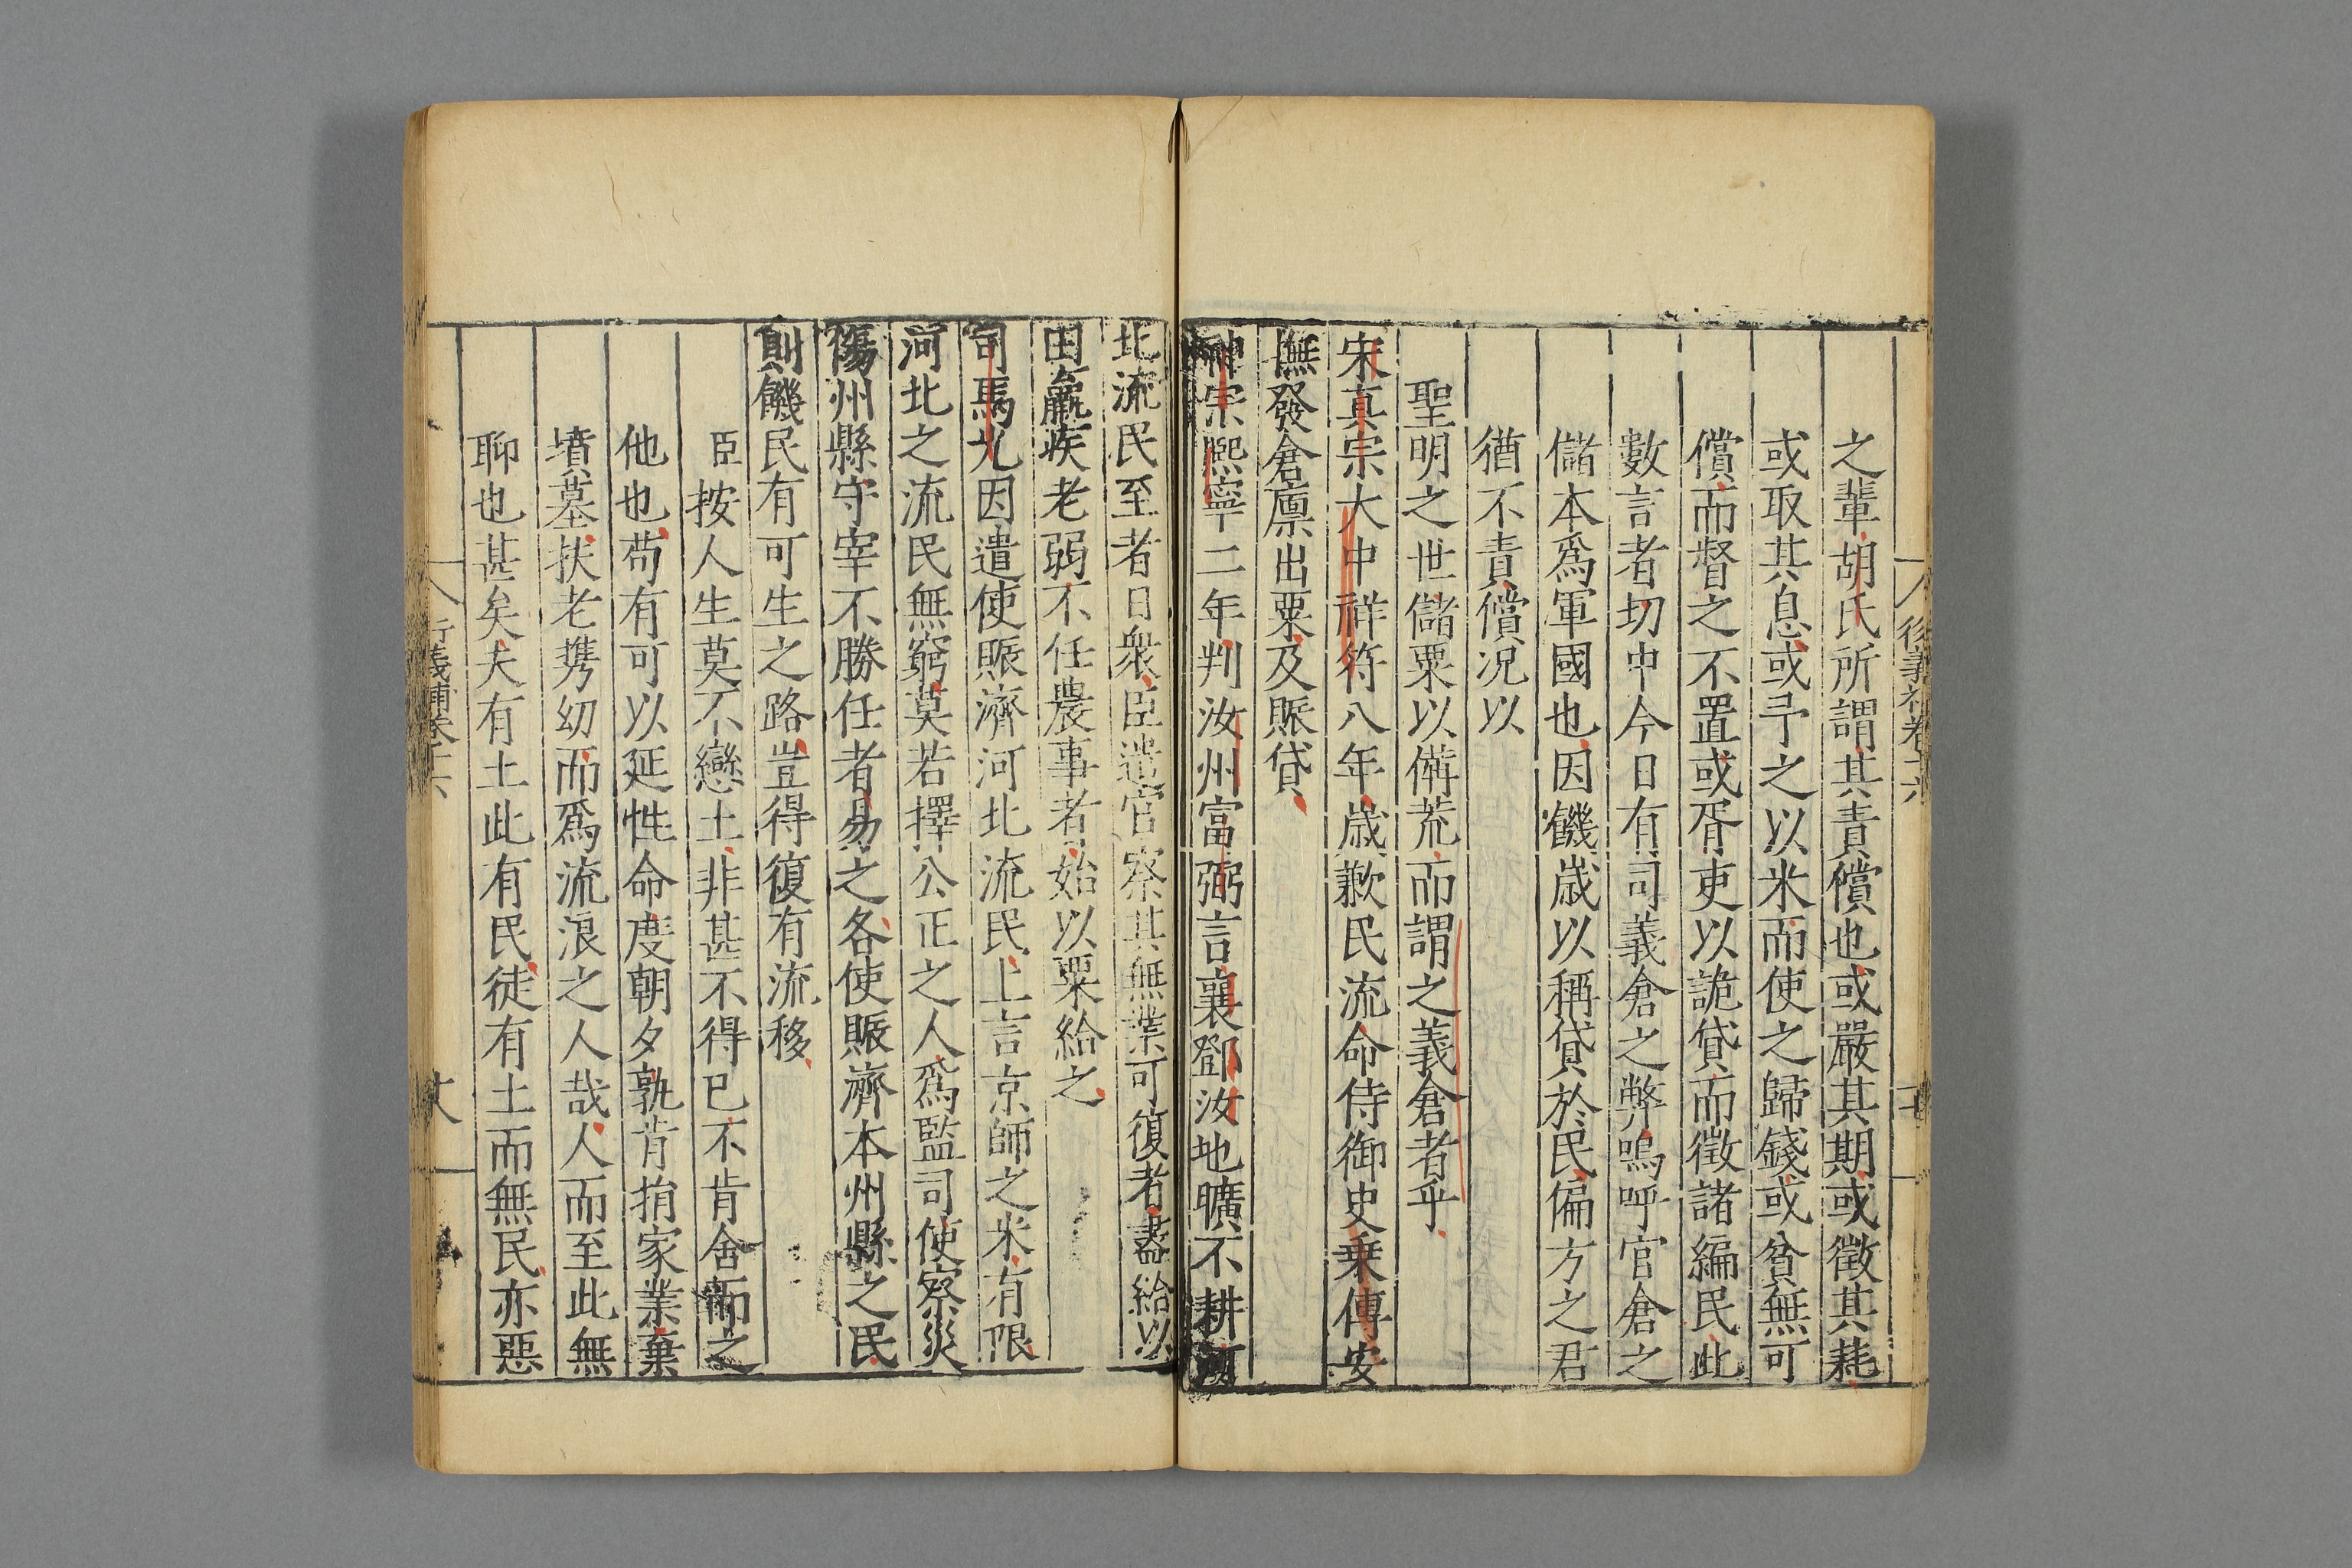 之輩胡氏所謂其責償也或嚴其期或徵其耗
或取其息或予之以米而使之歸錢或貧無可
償而督之不置或胥吏以詭貸而徵諸編民此
數言者切中今日有司義倉之弊嗚呼官倉之
儲本爲軍國也因饑歲以稱貸於民偏方之君
猶不責償况以
聖明之世儲粟以備荒而謂之義倉者乎
宋真宗大中祥符八年歲歉民流命侍御史乗傳安
撫發倉廪出粟及賑貸
神宗熙寧二年判汝州富弼言襄鄧汝地曠不耕河
北流民至者日衆臣遣官察其無業可復者盡給以
田羸疾老弱不任農事者始以粟給之
司馬光因遣使賑濟河北流民上言京師之米有限
河北之流民無窮莫若擇公正之人爲監司使察災
傷州縣守宰不勝任者易之各使賑濟本州縣之民
則饑民有可生之路豈得復有流移
臣按人生莫不戀土非甚不得已不肯舍而之
他也苟有可以延性命度朝夕孰肯捐家業棄
墳墓扶老携幼而爲流浪之人哉人而至此無
聊也甚矣夫有土此有民徒有土而無民亦惡